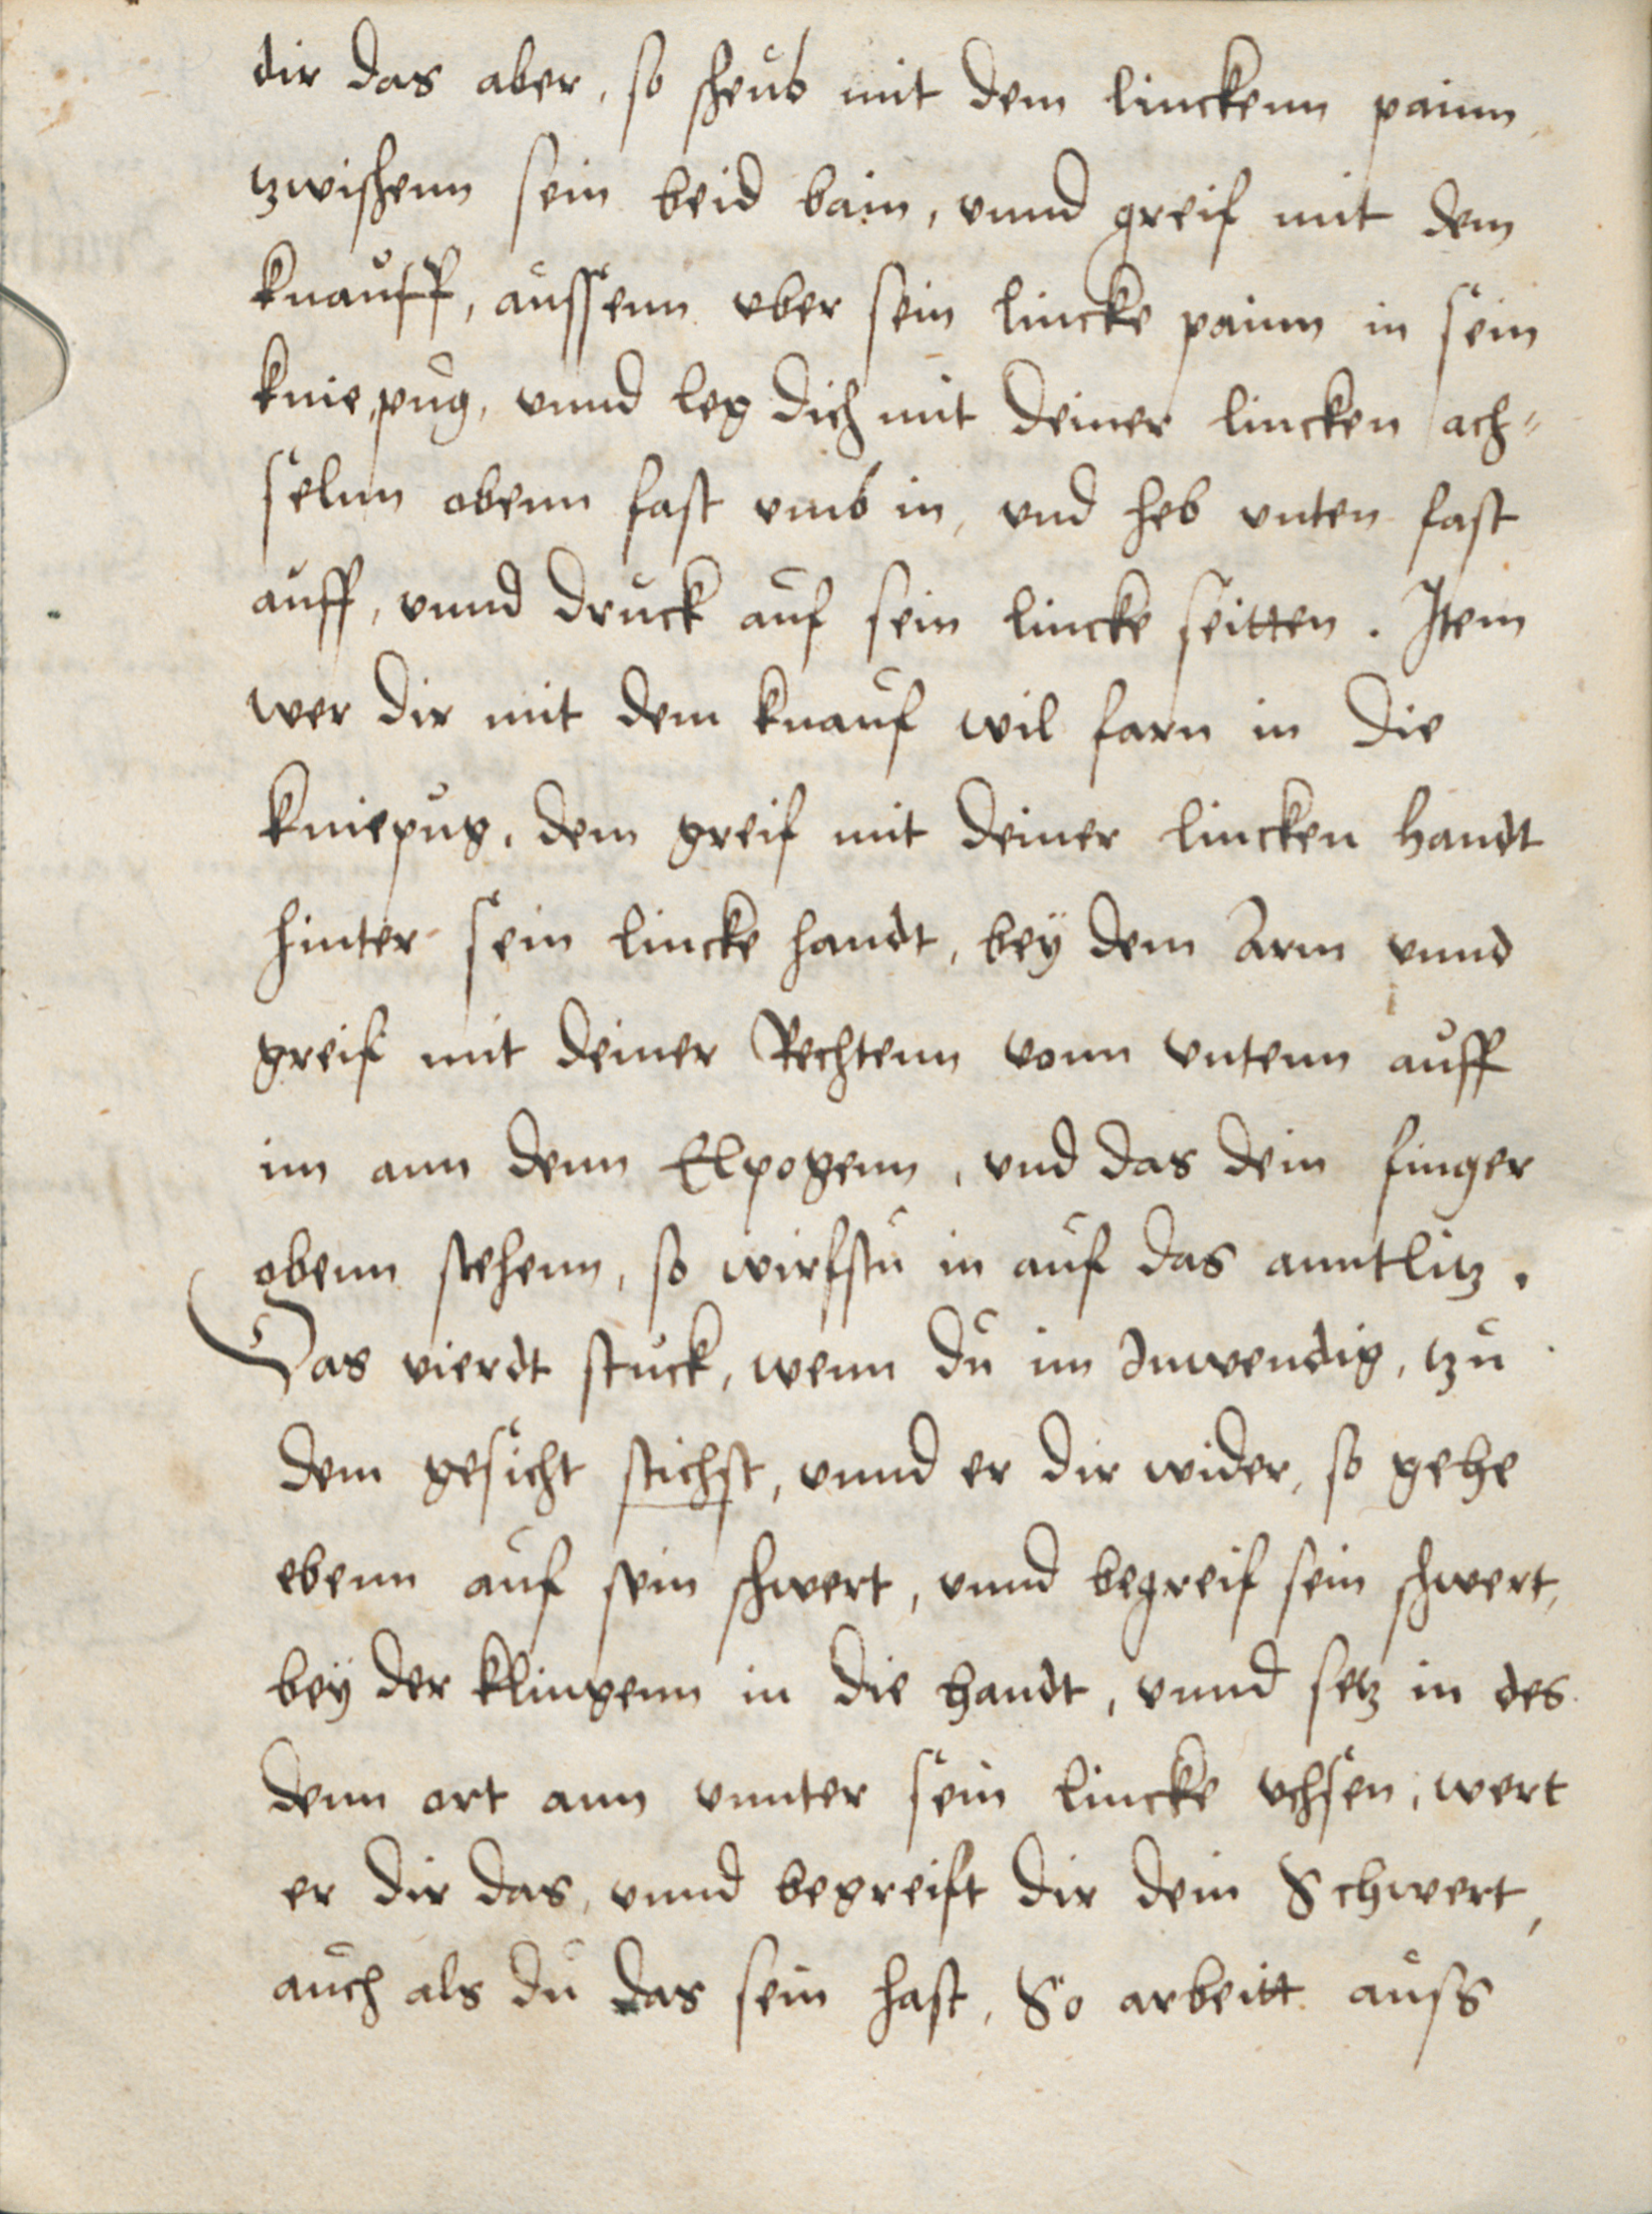 dir das aber, so scheub mit dem linckenn painn
tzwischenn sein beid bain, vnnd greif mit dem
knauff, aussenn vber sein lincke painn in sein
kniepug, vnnd leg dich mit deiner lincken ach=
selnn obenn fast vmb in, vnd heb vnten fast
auff, vnnd druck auf sein lincke seitten. Item
wer dir mit dem knauf wil farn in die
kniepug, dem greif mit deiner lincken handt
hinter sein lincke handt, bey dem Arm vnnd
greif mit deiner Rechtenn vonn vntenn auff
im ann denn Elpogenn, vnd das dein finger
obenn stehenn, so wirfstu in auf das anntlitz.
Das vierdt stuck, wenn du im Inwendig, tzu
dem gesicht stichst, vnnd er dir wider, so gehe
ebenn auf sein schwert, vnnd begreif sein schwert,
bey der klingenn in die handt, vnnd setz in des
denn ort ann vnnter sein lincke vchsen, wert
er dir das, vnnd begreift dir dein Schwert,
auch als du das sein hast, So arbeitt auss